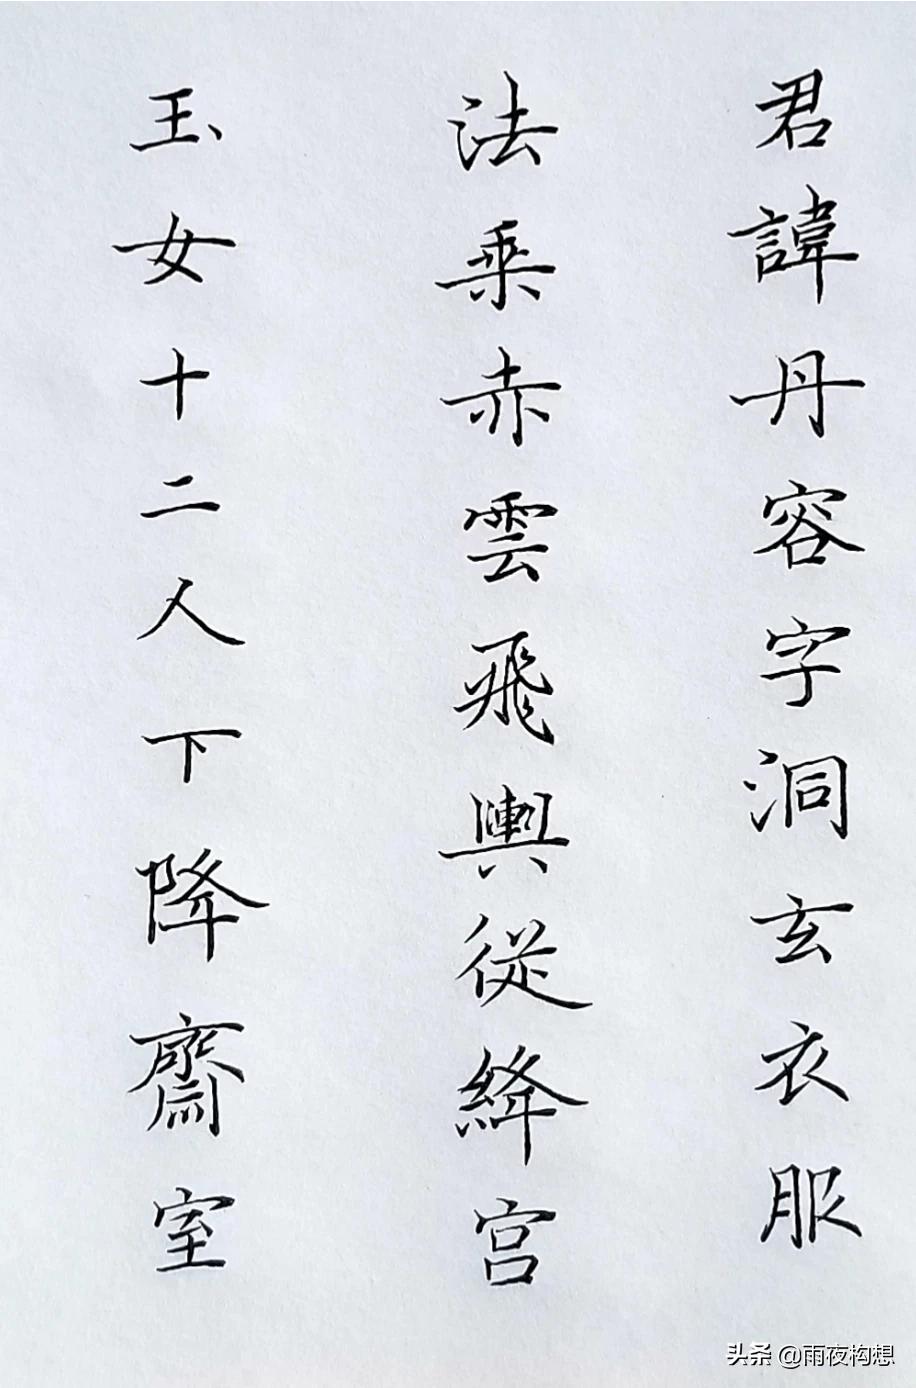 君諱丹容字洞玄衣服
法乘赤雲飛輿從絳宫
玉女十二人下降齋室
头条 @雨夜构想